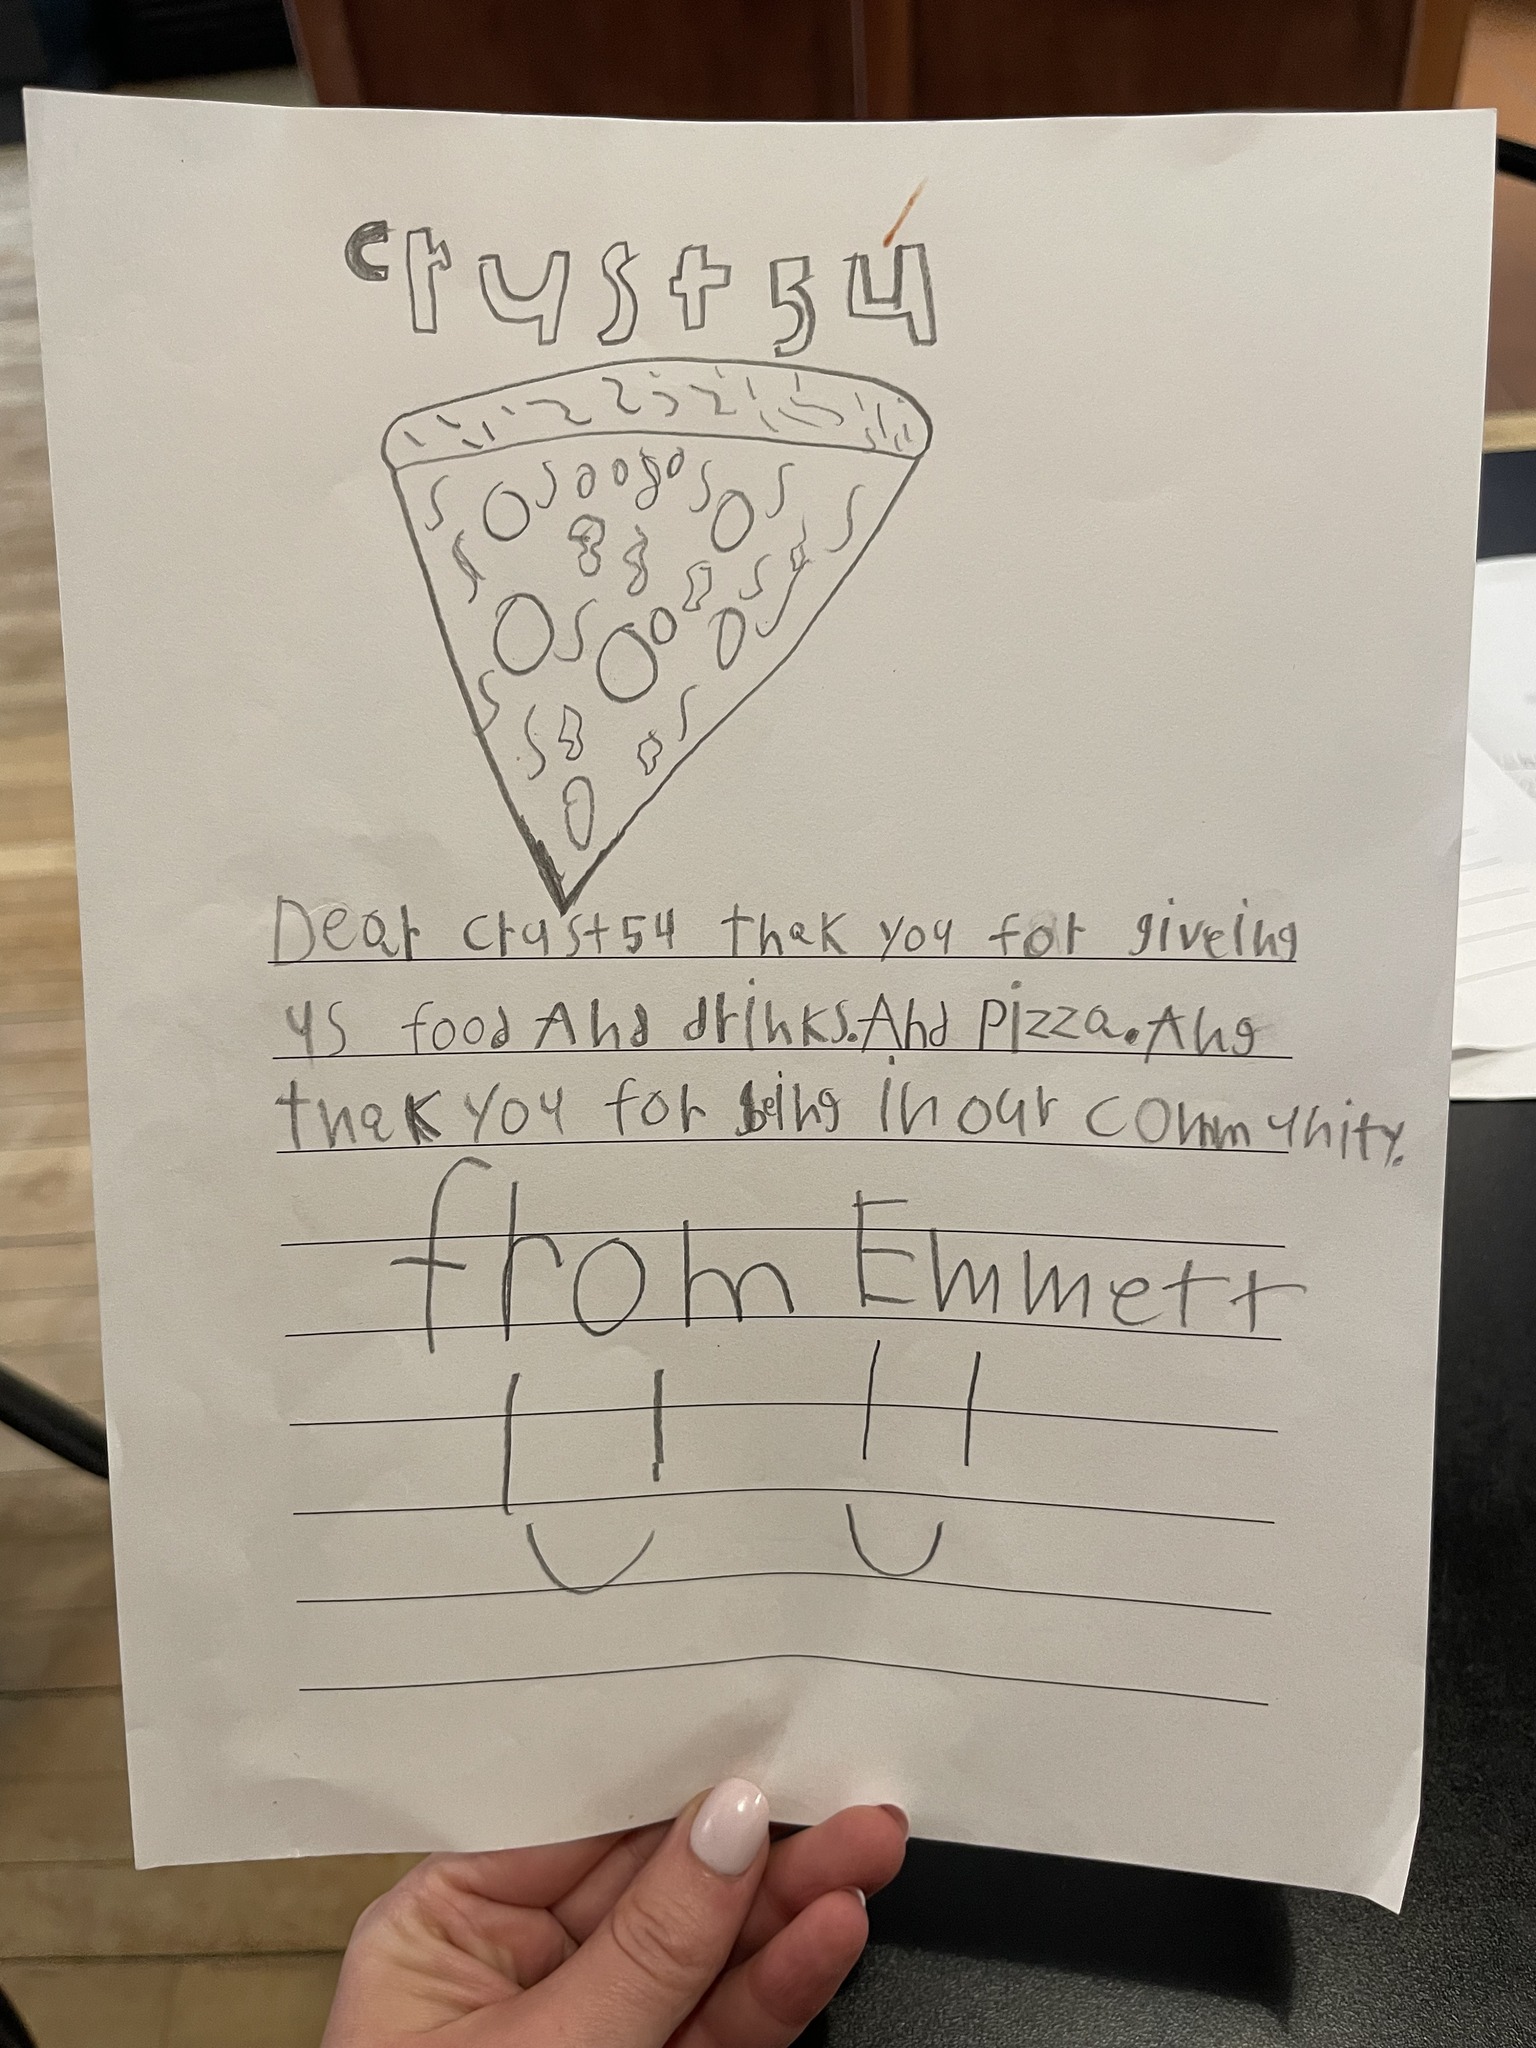 crust54
Dear crust54 thak you for giveing
us food And drinks.And pizza.And
thak you for being in our community.
from Emmett